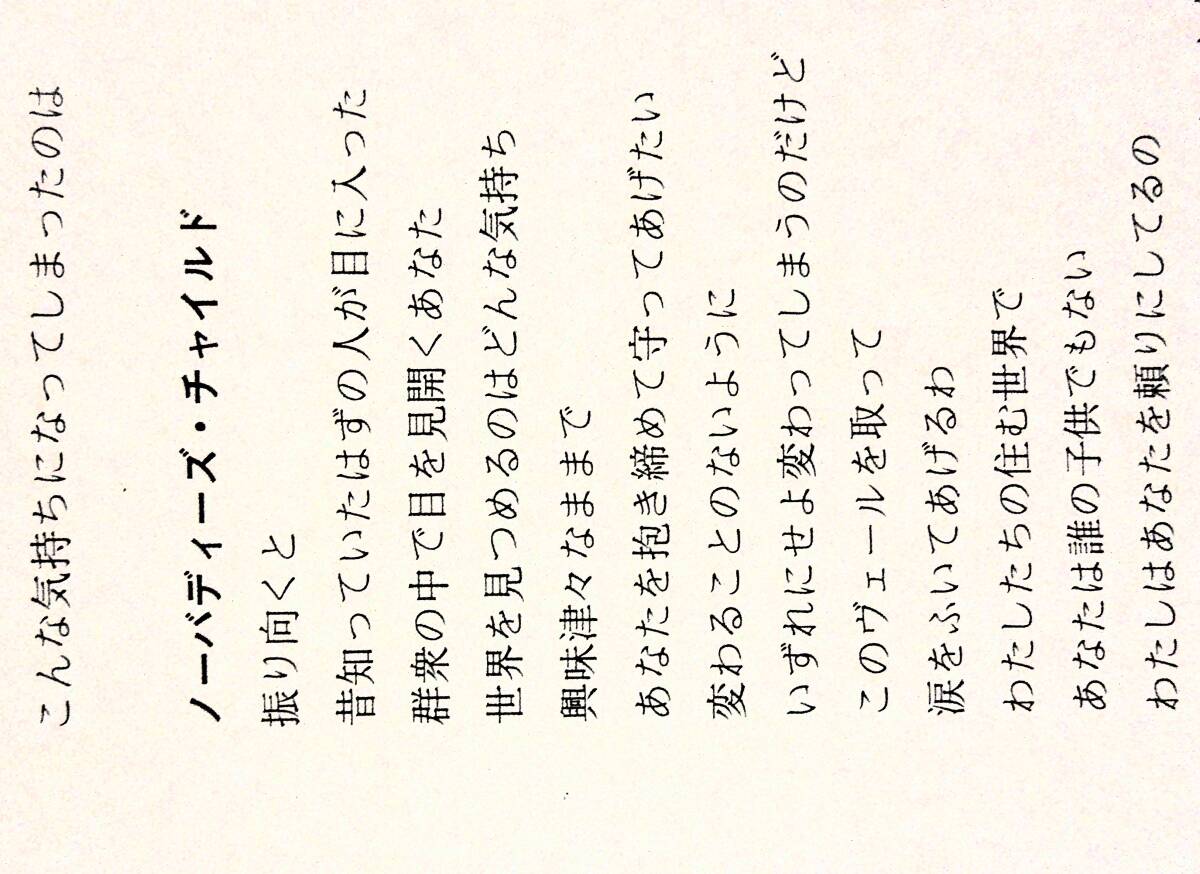 こんな気持ちになってしまったのは
ノーバディーズ・チャイルド
振り向くと
昔知っていたはずの人が目に入った
群衆の中で目を見開くあなた
世界を見つめるのはどんな気持ち
興味津々なままで
あなたを抱き締めて守ってあげたい
変わることのないように
いずれにせよ変わってしまうのだけど
このヴェールを取って
涙をふいてあげるわ
わたしたちの住む世界で
あなたは誰の子供でもない
わたしはあなたを頼りにしてるの